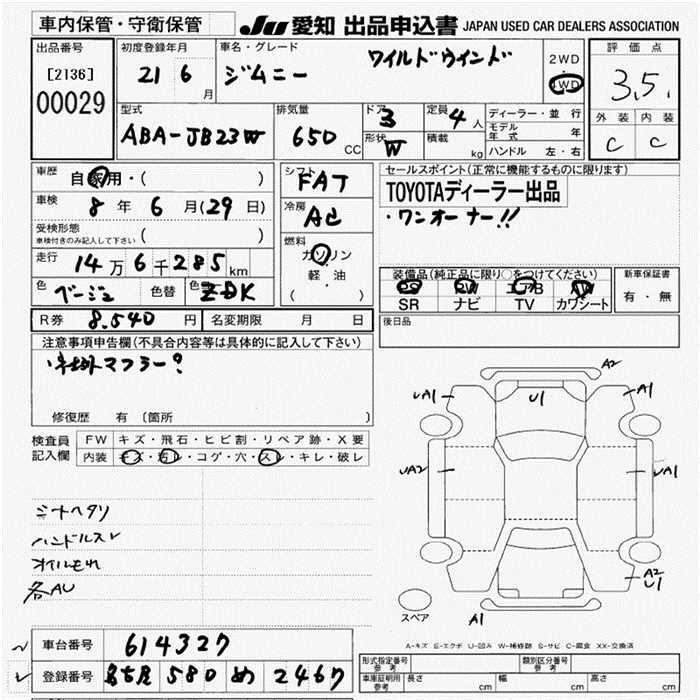 車内保管・守衛保管
JU 愛知 出品申込書 JAPAN USED CAR DEALERS ASSOCIATION
出品番号
[2136]
00029
初度登録年月
21 6 月
車名・グレード
ジムニー ワイルドウインド
2WD
4WD
評価点
3.5
外装 内装
C C
型式
ABA-JB23W
排気量
650 CC
ドア 3
形状 W
定員 4 人
積載 kg
ディーラー・並行
モデル年式 年
ハンドル 左・右
車歴 自家用・( )
車検 8年 6月(29日)
受検形態
車検付きのみ記入して下さい ( )
走行 14万6千285km
色 ベージュ 色替 色 ZDK
シフト FAT
冷房 AC
燃料
ガソリン
軽・油
( )
セールスポイント(正常に機能するものに限ります)
TOYOTAディーラー出品
・ワンオーナー!!
装備品(純正品に限り○をつけてください)
PS PW エアB AW
SR ナビ TV カワシート
新車保証書
有・無
R券 8.540 円 名変期限 月 日
後日品
注意事項申告欄(不具合内容等は具体的に記入して下さい)
・社外マフラー?
修復歴 有 〔箇所 〕
検査員
記入欄
FW キズ・飛石・ヒビ割・リペア跡・X要
内装 キズ・汚レ・コゲ・穴・スレ・キレ・破レ
シートヘタリ
ハンドルスレ
オイルもれ
各AU
A2
UA1 U1 A1
UA2 UA1
A2
U1
スペア A1
A-キズ E-エクボ U-凹み W-補修跡 S-サビ C-腐食 XX-交換済
車台番号 614327
登録番号 名古屋 580 め 2467
型式指定番号
参考
類別区分番号
参考
車庫証明用
参考
長さ cm 幅 cm 高さ cm